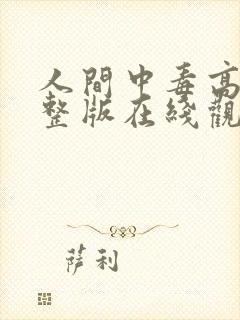 人間中毒高
整版在綫觀
萨利